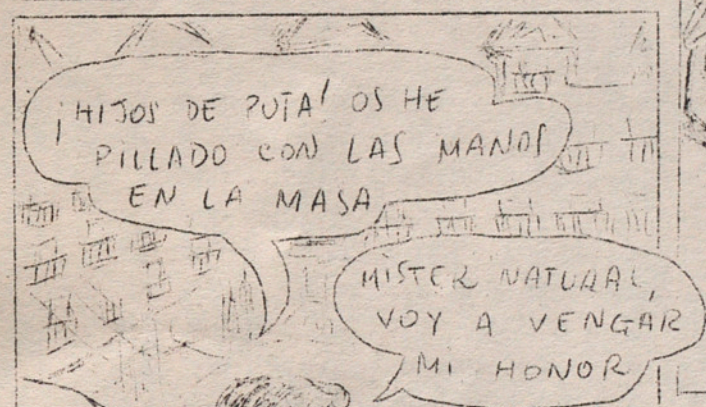 ¡HIJOS DE PUTA! OS HE
PILLADO CON LAS MANOS
EN LA MASA
MISTER NATURAL,
VOY A VENGAR
MI HONOR